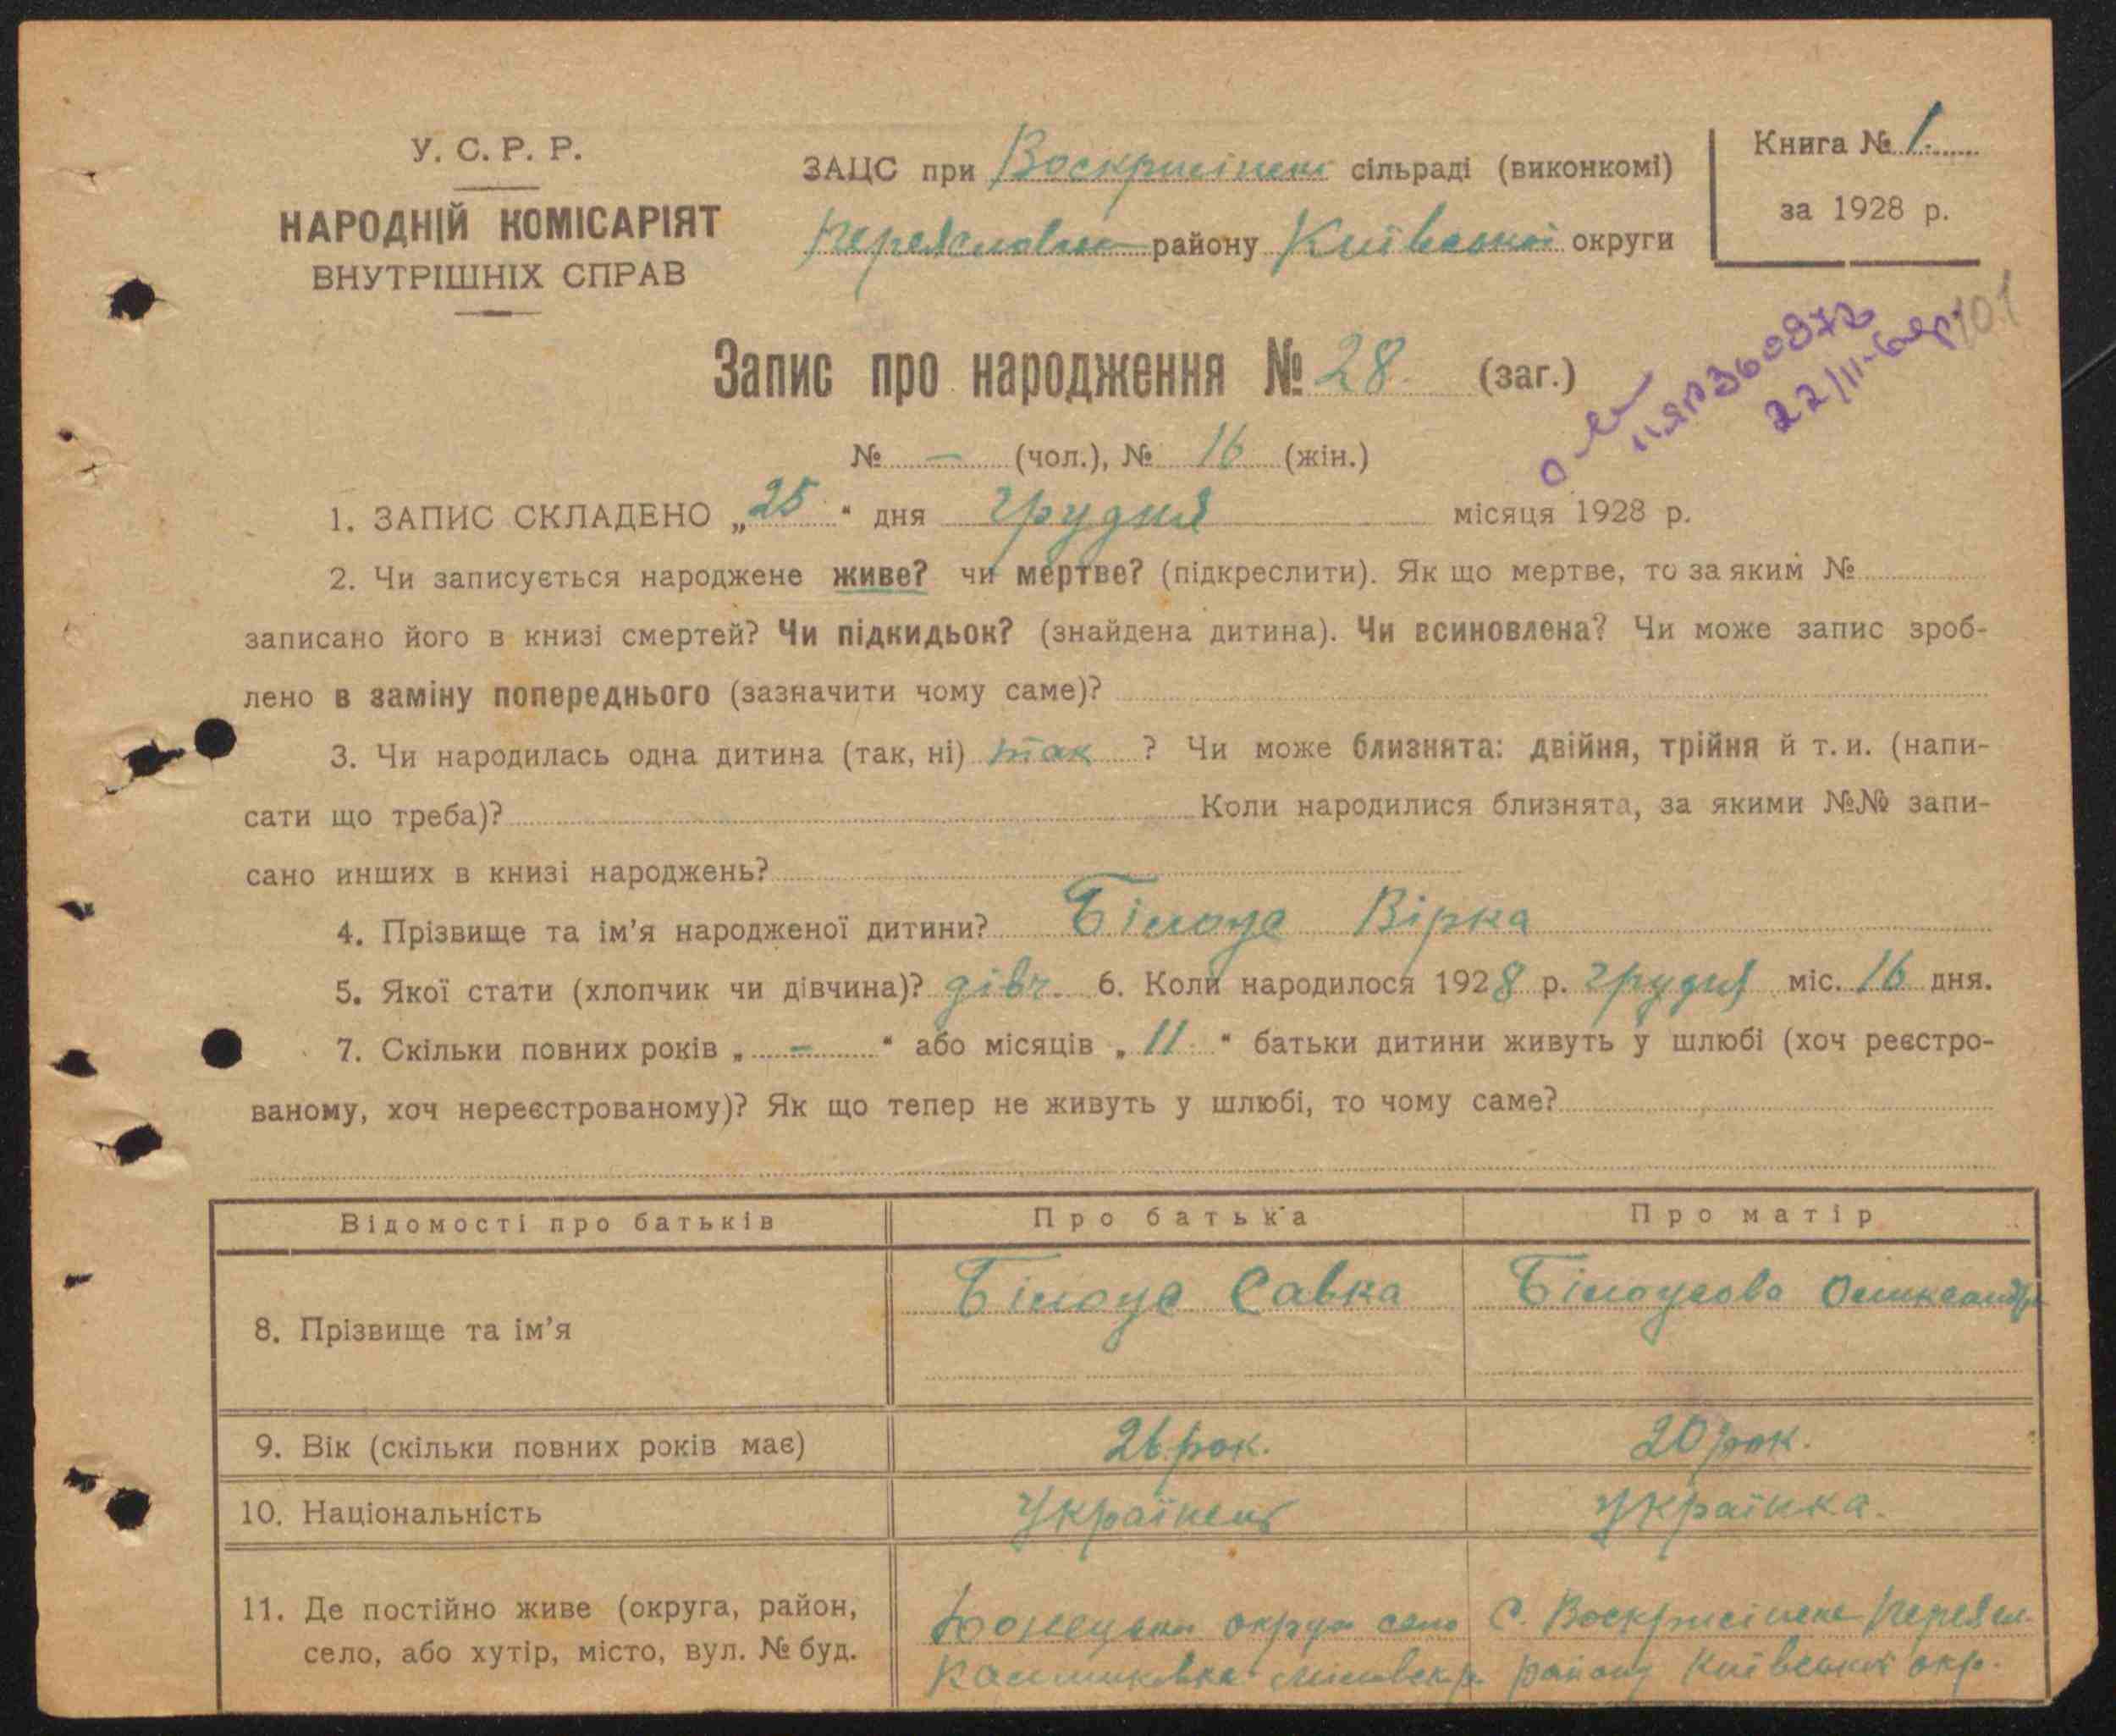 У. С. Р. Р.
НАРОДНІЙ КОМІСАРІЯТ
ВНУТРІШНІХ СПРАВ
ЗАЦС при сільраді (виконкомі)
району Київської округи
Книга № 1.
за 1928 р.
Запис про народження № 28. (заг.)
22/II-
101
№ – (чол.), № 16 (жін.)
1. ЗАПИС СКЛАДЕНО „25“ дня грудня місяця 1928 р.
2. Чи записується народжене живе? чи мертве? (підкреслити). Як що мертве, то за яким №
записано його в книзі смертей? Чи підкидьок? (знайдена дитина). Чи всиновлена? Чи може запис зроб-
лено в заміну попереднього (зазначити чому саме)?
3. Чи народилась одна дитина (так, ні) так ? Чи може близнята: двійня, трійня й т. и. (напи-
сати що треба)? Коли народилися близнята, за якими №№ запи-
сано инших в книзі народжень?
4. Прізвище та ім’я народженої дитини? Білоус Вірка
5. Якої стати (хлопчик чи дівчина)? дівч. 6. Коли народилося 1928 р. грудня міс. 16 дня.
7. Скільки повних років „ – “ або місяців „ 11 “ батьки дитини живуть у шлюбі (хоч реєстро-
ваному, хоч нереєстрованому)? Як що тепер не живуть у шлюбі, то чому саме?
Відомості про батьків Про батька Про матір
8. Прізвище та ім’я Білоус Савка Білоусова Олександра
9. Вік (скільки повних років має) 26 рок. 20 рок.
10. Національність Українець Українка.
11. Де постійно живе (округа, район,
село, або хутір, місто, вул. № буд.
округа село
С.
району Київської окр.